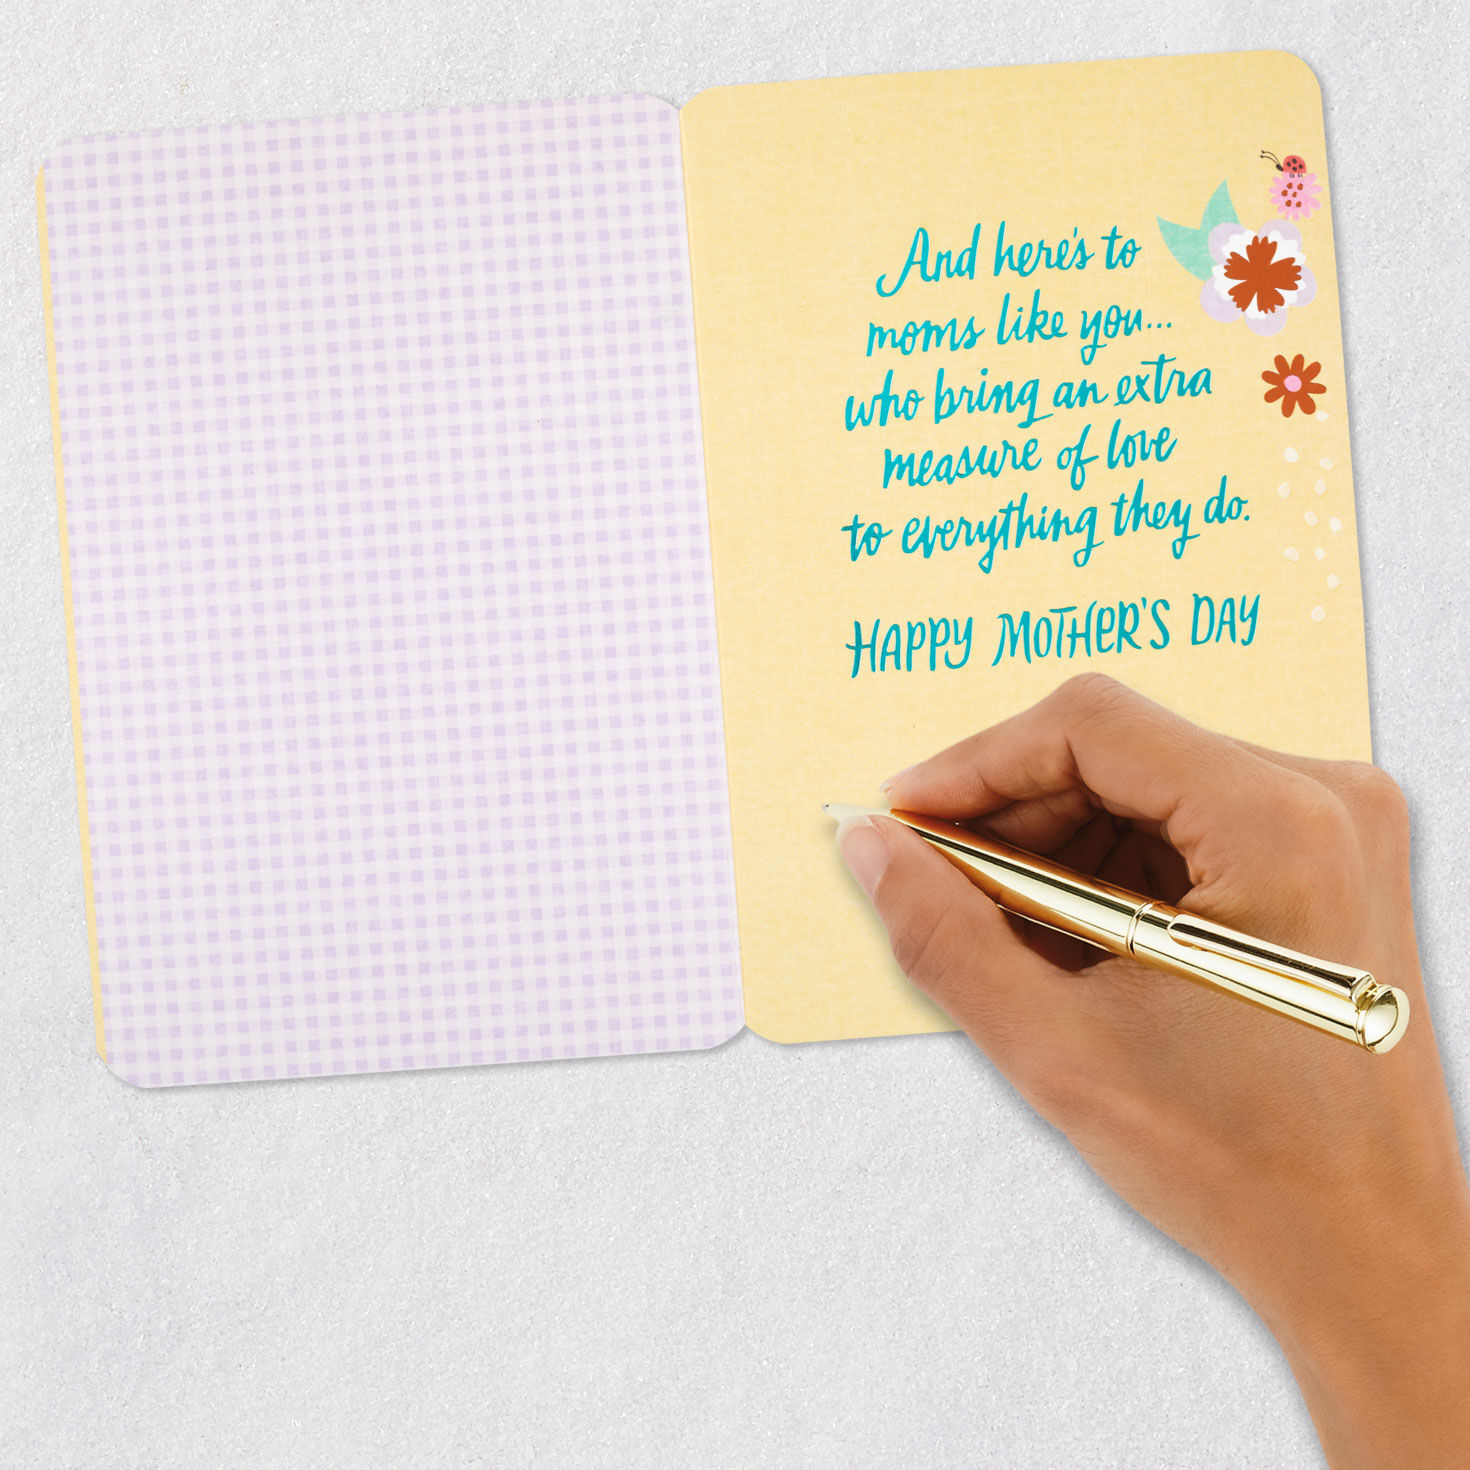 And here's to
moms like you...
who bring an extra
measure of love
to everything they do.
HAPPY MOTHER'S DAY